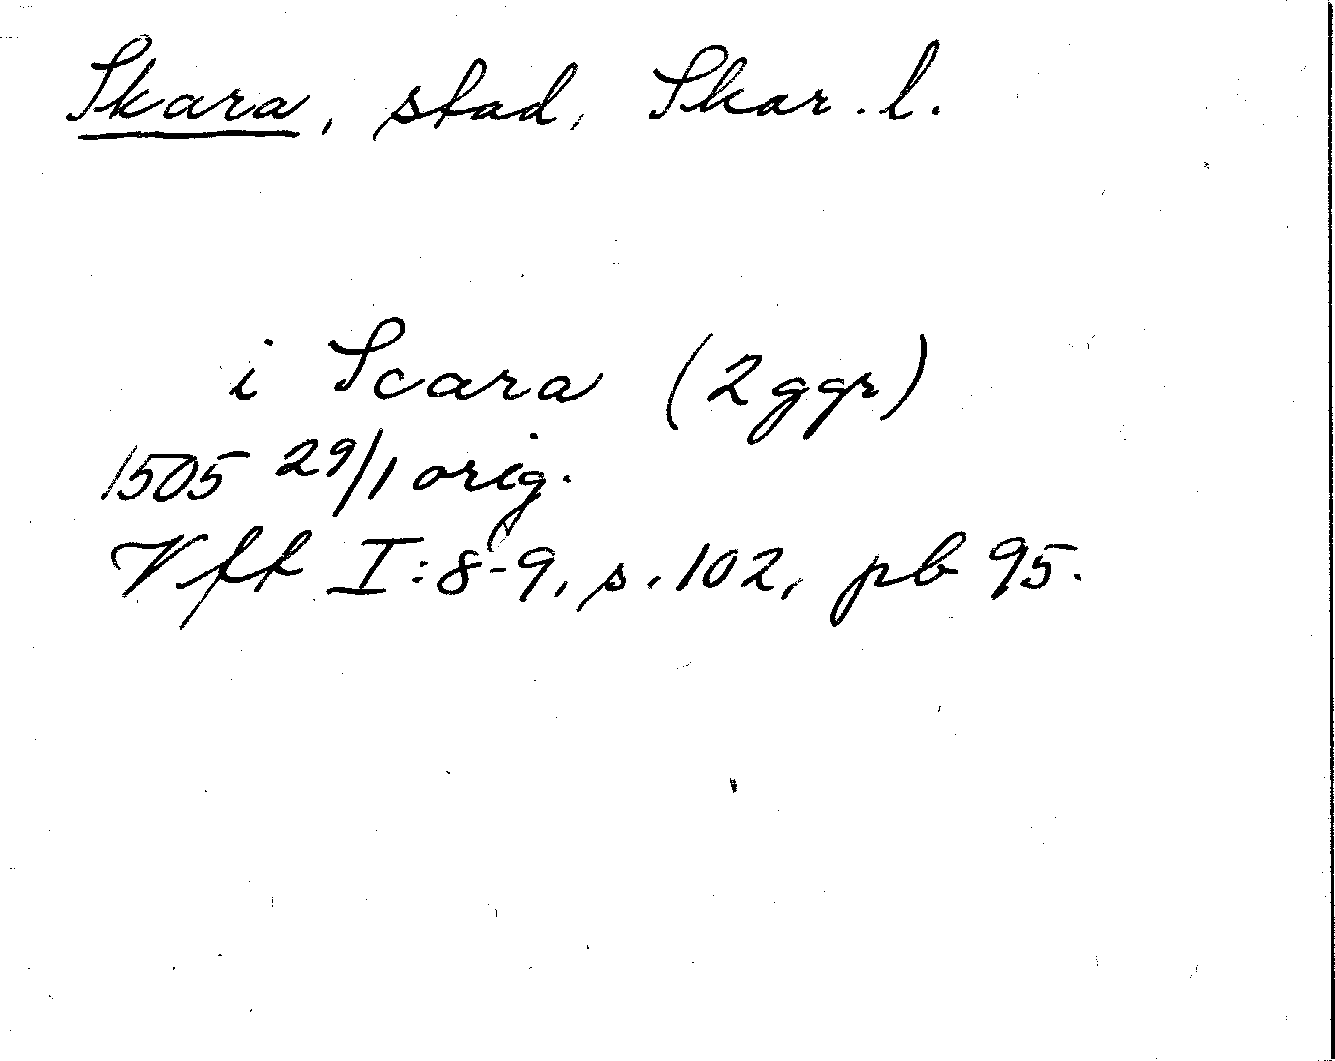 Skara, stad, Skar. l.
i Scara (2 ggr)
1505 29/1 orig.
Vft I:8-9, s. 102, pb 95.